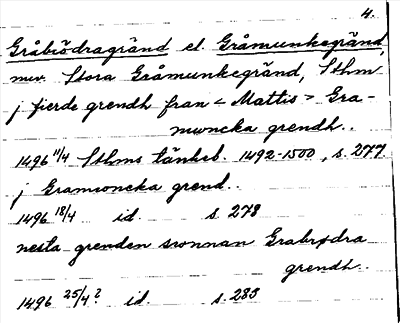 4.
Gråbrödragränd el. Gråmunkegränd,
nuv. Stora Gråmunkegränd, Sthm
j fierde grendh fran < Mattis > Gra-
muncka grendh..
1496 11/4 Sthms tänkeb. 1492-1500, s. 277.
j Gramuncka grend..
1496 18/4 id. s. 278
nesta grenden sunnan Grabrødra
grendh..
1496 25/4 ? id. s. 283